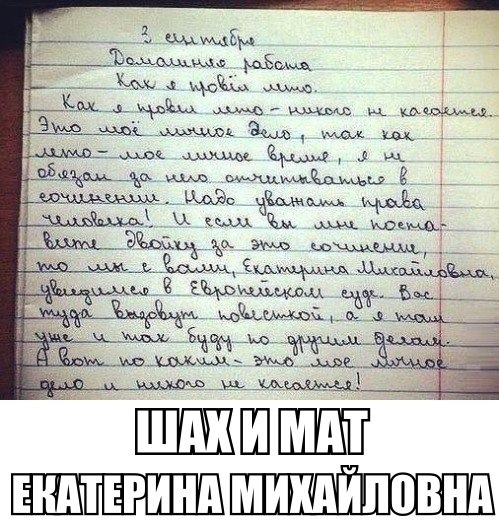 3 сентября
Домашняя работа
Как я провёл лето.
Как я провёл лето – никого не касается.
Это моё личное дело, так как
лето – мое личное время, я не
обязан за него отчитываться в
сочинении. Надо уважать права
человека! И если вы мне поста-
вите двойку за это сочинение,
то мы с вами, Екатерина Михайловна,
увидимся в Европейском суде. Вас
туда вызовут повесткой, а я там
уже и так буду по другим делам.
А вот по каким – это мое личное
дело и никого не касается!
ШАХ И МАТ
ЕКАТЕРИНА МИХАЙЛОВНА